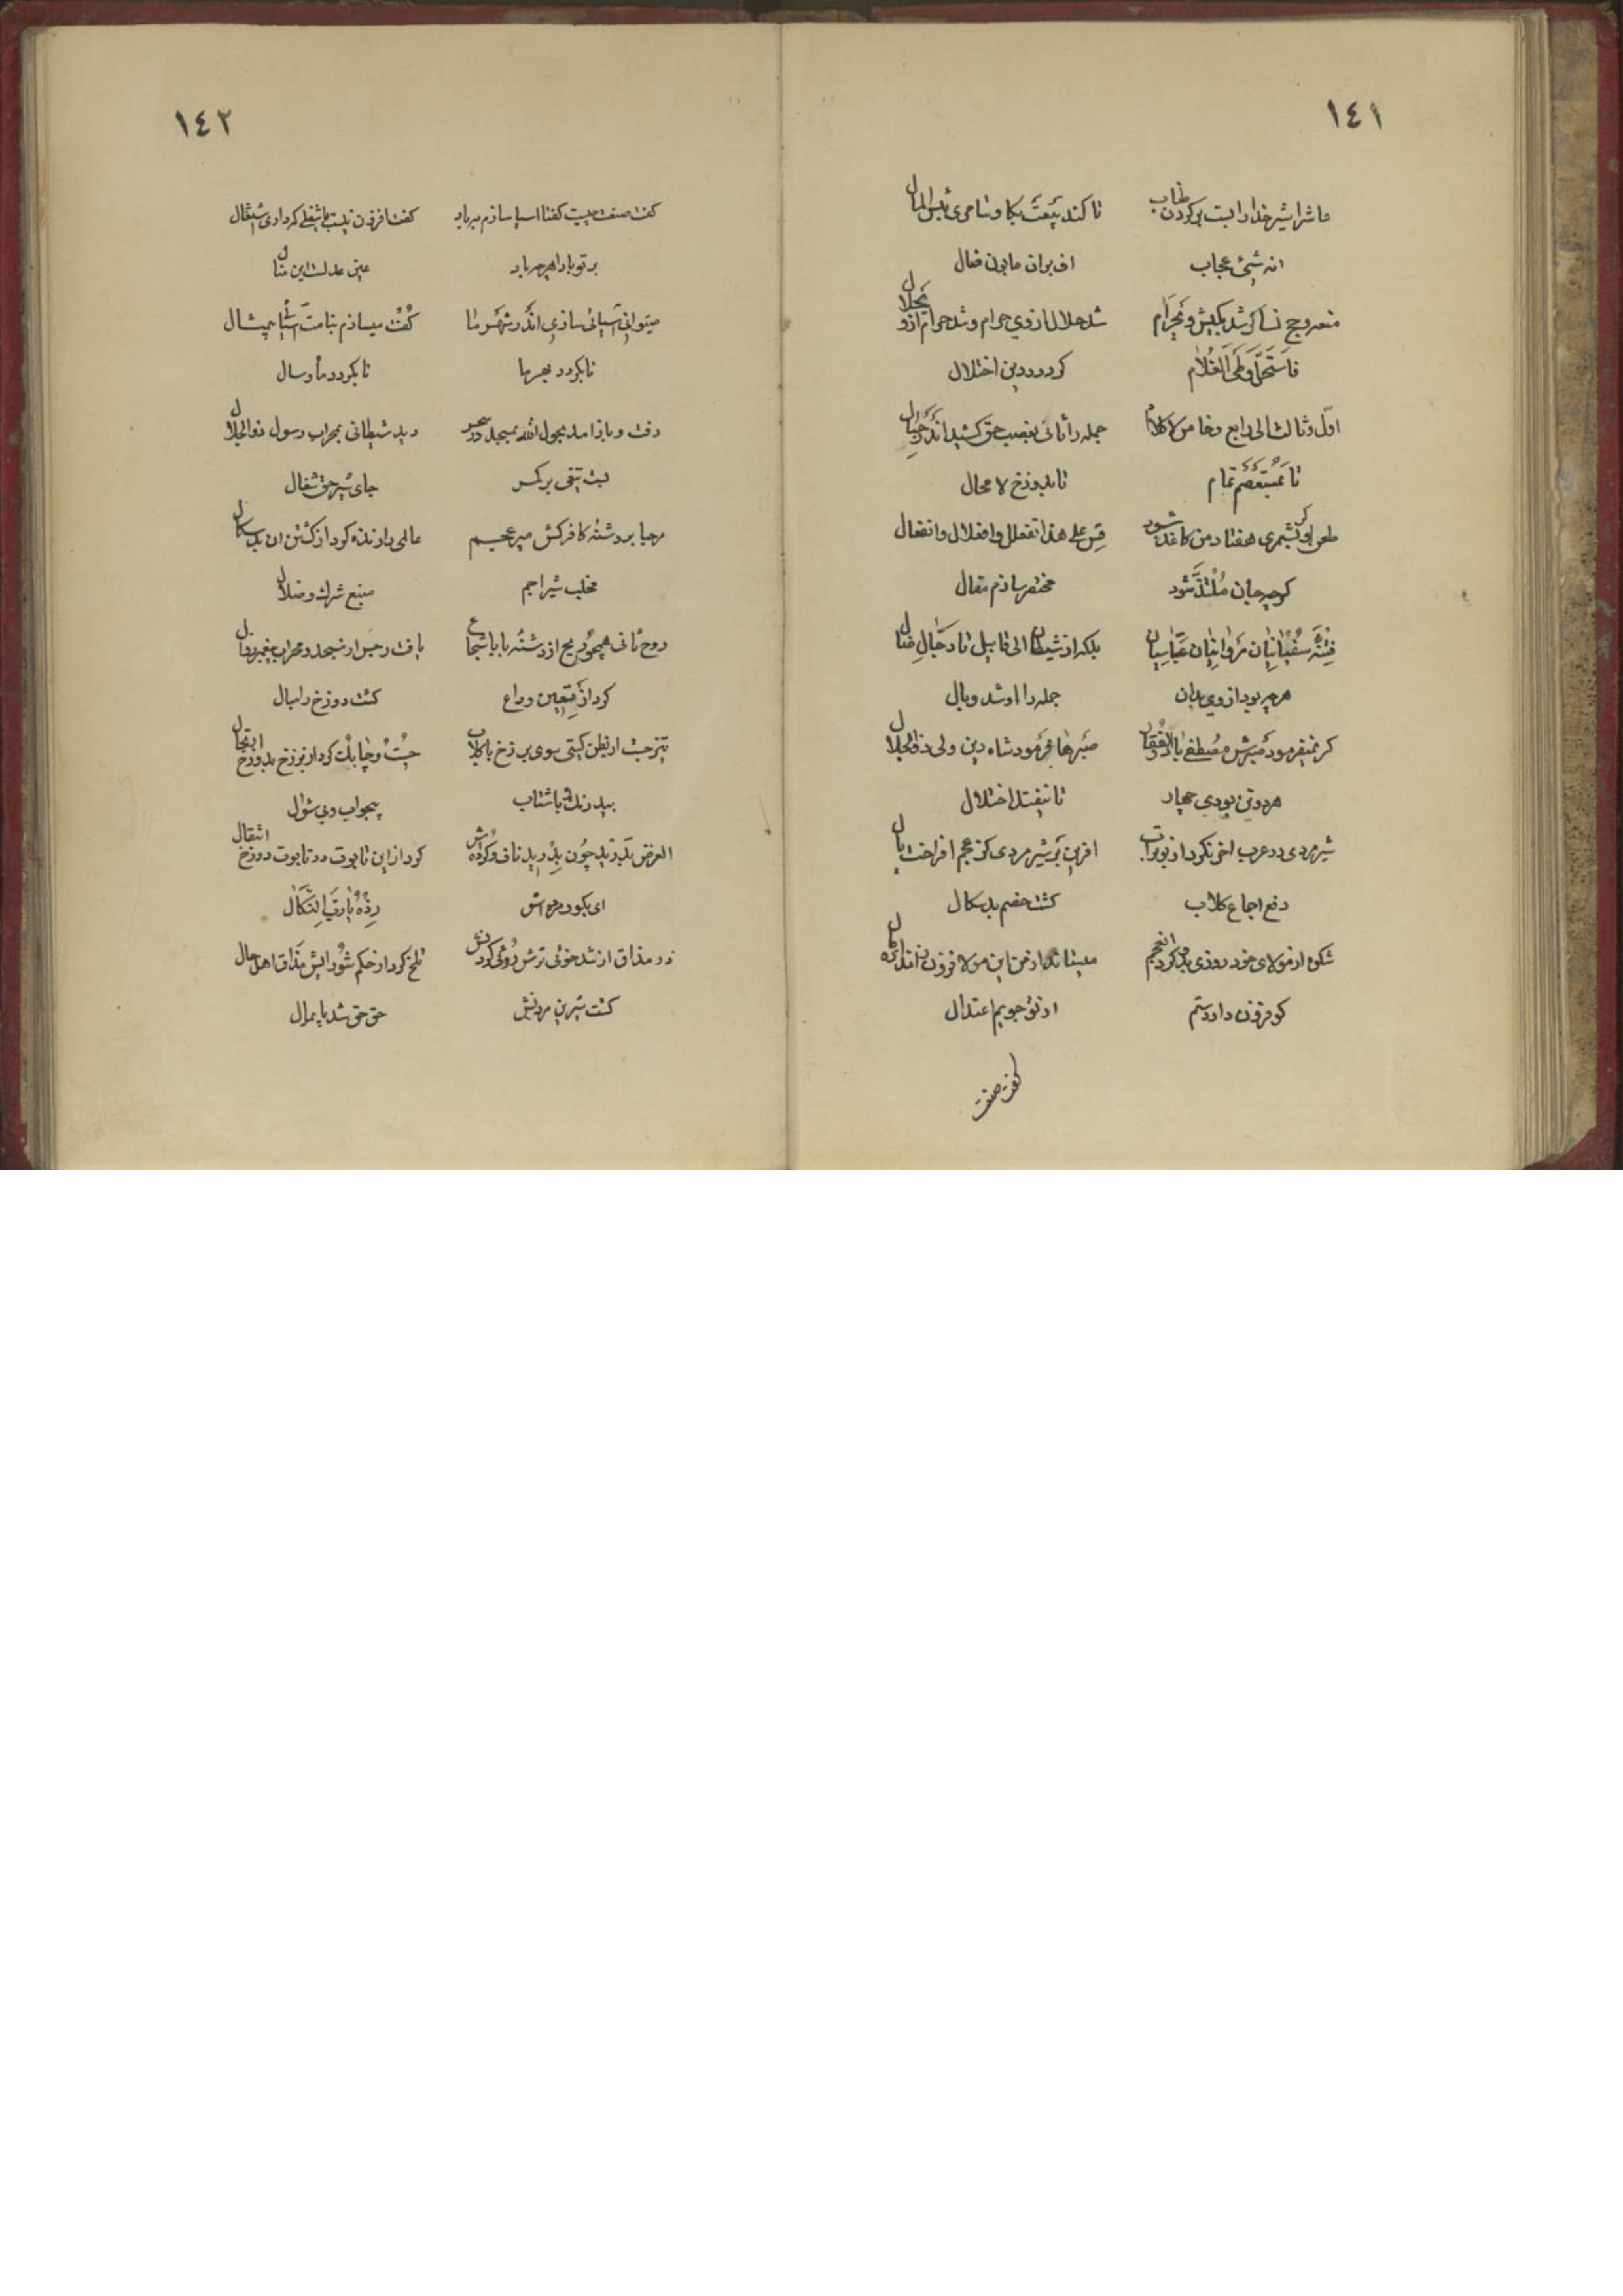 ١٤١
عاشرا شیر خدا را بست بر گردن طناب تا کند بیعت بگاو سامری بئس المآل
انه شیئ عجاب اف بر ان مابون ضال
متعه و حج نسا گر شد بکیش و نحرام شد حلال از وی حرام و شد حرام از و حلال
فاستحل وطی الغلام کرد در دین اختلال
اول و ثالث الی رابع و خامس لا کلام جمله را ثانی بغصب حق کشید اندر جبال
تا بمستعصم تمام تا بدوزخ لا محال
طعن او گر بشمری هفتاد من کاغذ شود قس علی هذا تفعلل وافعلال وانفعال
گرچه جان ملتذ شود مختصر سازم مقال
فتنه سفیانیان مروانیان عباسیان بلکه از شیطان الی قابیل تا دجال ضال
هرچه بود از وی بدان جمله را او شد وبال
گر نمیفرمود صبرش مصطفی با ذوالفقار صبرها فرمود شاه دین ولی ذوالجلال
هر دوتن بودی چهار تا نیفتد اختلال
شیر مردی در عرب اخر نکرد از بوتراب افرین بر شیر مردی کز عجم افراخت یال
دفع اجماع کلاب کشت خصم بد سکال
شکوه از مولای خود روزی بدو کرد انعجم میستاند از من این مولا فزون ز اندازه مال
کو فزون دارد ستم از تو جویم اعتدال
گفت صنعت
١٤٢
گفت صنعت چیست گفتا اسیا سازم بباد گفت افزون نیست با شغلی که داری اشتغال
بر تو باد اهر چه باد عین عدلست این منال
میتوانی آسیائی سازی اندر شهر ما گفت میسازم بنامت آسیا بیمثال
تا بگردد بهر ما تا بگردد ماه و سال
رفت و باز امد بحول الله بمسجد در سحر دید شیطانی بمحراب رسول ذوالجلال
بست تیغی بر کمر جای شیر حق شغال
مرحبا بر دشنه کافر کش میر عجیم عالمی را زنده کرد از کشتن ان بد سگال
مخلب شیر اجم منبع شرک و ضلال
روح ثانی همچو ریح از دشنه بابا شجاع یافت رجس از مسجد و محراب پیغمبر زوال
کرد از قعین وداع گشت دوزخ را مبال
تیز جست از بطن گیتی سوی برزخ با کلاب چست و چابک کرد از برزخ بدوزخ ارتحال
بیدرنگ و با شتاب بیجواب و بی سؤال
الغرض بد زید چون بد درید ناف و گرده‌ش کرد از این تابوت در تابوت دوزخ انتقال
ای بگور مرده اش زده یا رب النکال
در مذاق از تند خوئی ترش روئی کردنش تلخ کرد از حکم شورایش مذاق اهل حال
گشت شیرین مردنش حق حق شد پایمال